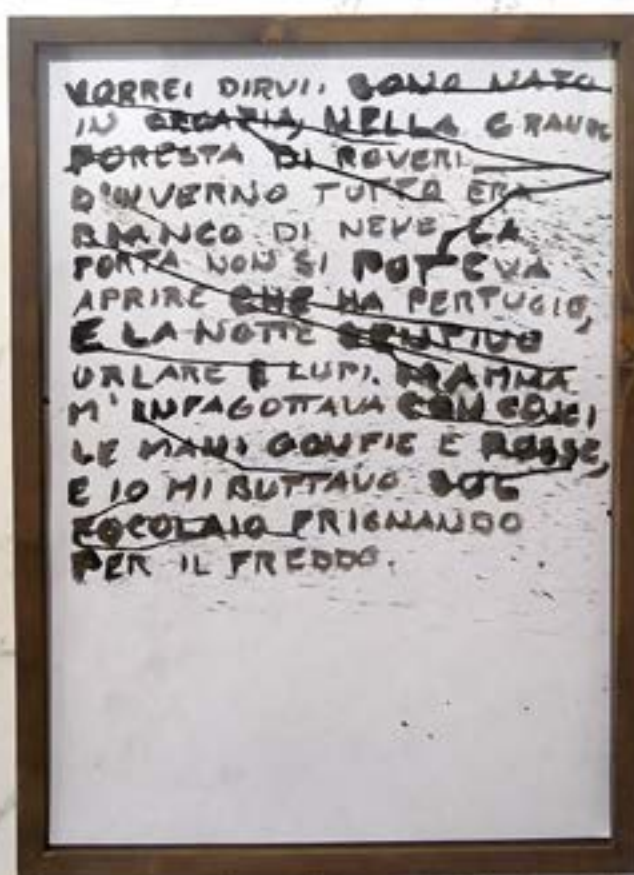 VORREI DIRVI: SONO NATO
IN CROAZIA, NELLA GRANDE
FORESTA DI ROVERI.
D'INVERNO TUTTO ERA
BIANCO DI NEVE LA
PORTA NON SI POTEVA
APRIRE CHE HA PERTUGIO,
E LA NOTTE SENTIVO
URLARE I LUPI. MAMMA
M'INFAGOTTAVA CON CENCI
LE MANI GONFIE E ROSSE,
E IO MI BUTTAVO SUL
FOCOLAIO FRIGNANDO
PER IL FREDDO.